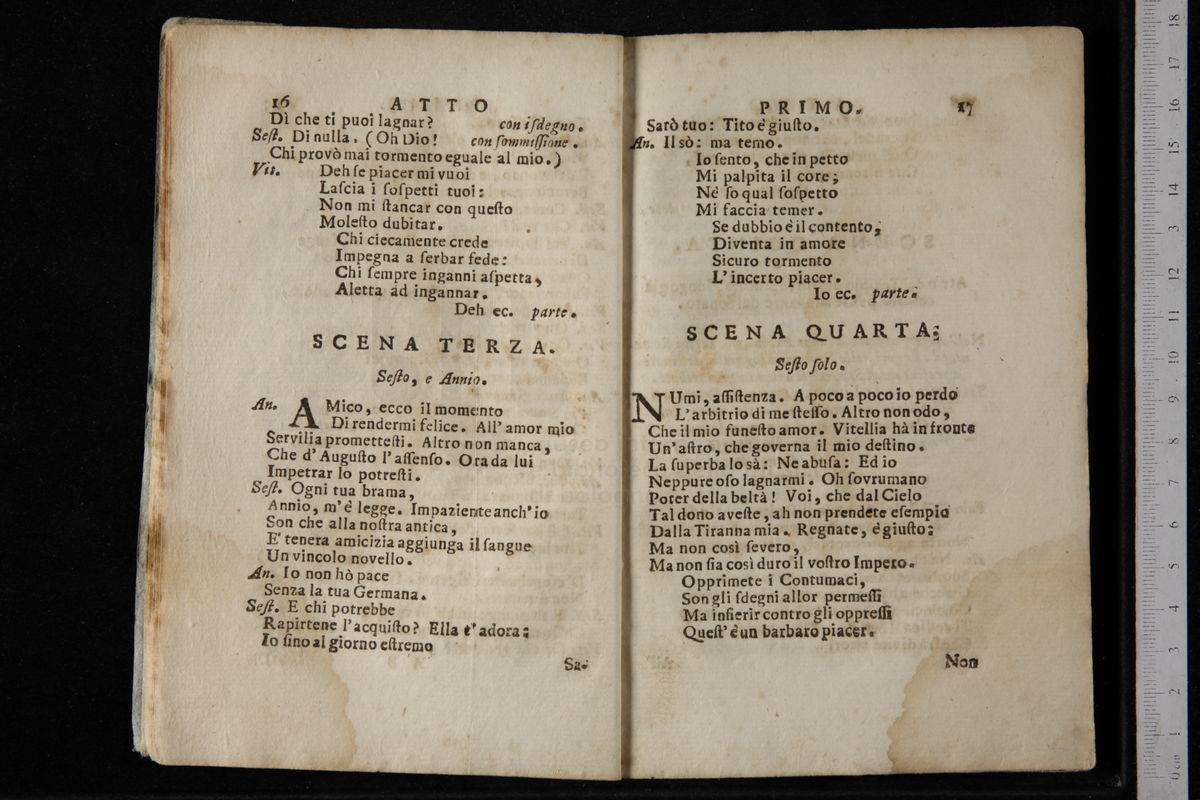 16 ATTO
Dì che ti puoi lagnar? con isdegno.
Seſt. Di nulla. (Oh Dio! con ſommiſſione.
Chi provò mai tormento eguale al mio.)
Vit. Deh ſe piacer mi vuoi
Laſcia i ſoſpetti tuoi:
Non mi ſtancar con queſto
Moleſto dubitar.
Chi ciecamente crede
Impegna a ſerbar fede:
Chi ſempre inganni aſpetta,
Aletta ad ingannar.
Deh ec. parte.
SCENA TERZA.
Seſto, e Annio.
An. AMico, ecco il momento
Di rendermi felice. All' amor mio
Servilia promettesti. Altro non manca,
Che d' Auguſto l' aſſenſo. Ora da lui
Impetrar lo potreſti.
Seſt. Ogni tua brama,
Annio, m' è legge. Impaziente anch' io
Son che alla noſtra antica,
E' tenera amicizia aggiunga il ſangue
Un vincolo novello.
An. Io non hò pace
Senza la tua Germana.
Seſt. E chi potrebbe
Rapirtene l' acquiſto? Ella t' adora:
Io ſino al giorno eſtremo
Sa-
PRIMO. 17
Sarò tuo: Tito è giuſto.
An. Il sò: ma temo.
Io ſento, che in petto
Mi palpita il core;
Nè ſo qual ſoſpetto
Mi faccia temer.
Se dubbio è il contento,
Diventa in amore
Sicuro tormento
L' incerto piacer.
Io ec. parte.
SCENA QUARTA.
Seſto ſolo.
NUmi, aſſiſtenza. A poco a poco io perdo
L' arbitrio di me ſteſſo. Altro non odo,
Che il mio funeſto amor. Vitellia hà in fronte
Un' aſtro, che governa il mio deſtino.
La ſuperba lo sà: Ne abuſa: Ed io
Neppure oſo lagnarmi. Oh ſovrumano
Poter della beltà! Voi, che dal Cielo
Tal dono aveſte, ah non prendete eſempio
Dalla Tiranna mia. Regnate, è giuſto:
Ma non così ſevero,
Ma non ſia così duro il voſtro Impero.
Opprimete i Contumaci,
Son gli ſdegni allor permeſſi
Ma inſierir contro gli oppreſſi
Queſt' è un barbaro piacer.
Non
0 cm 1 2 3 4 5 6 7 8 9 10 11 12 13 14 15 16 17 18